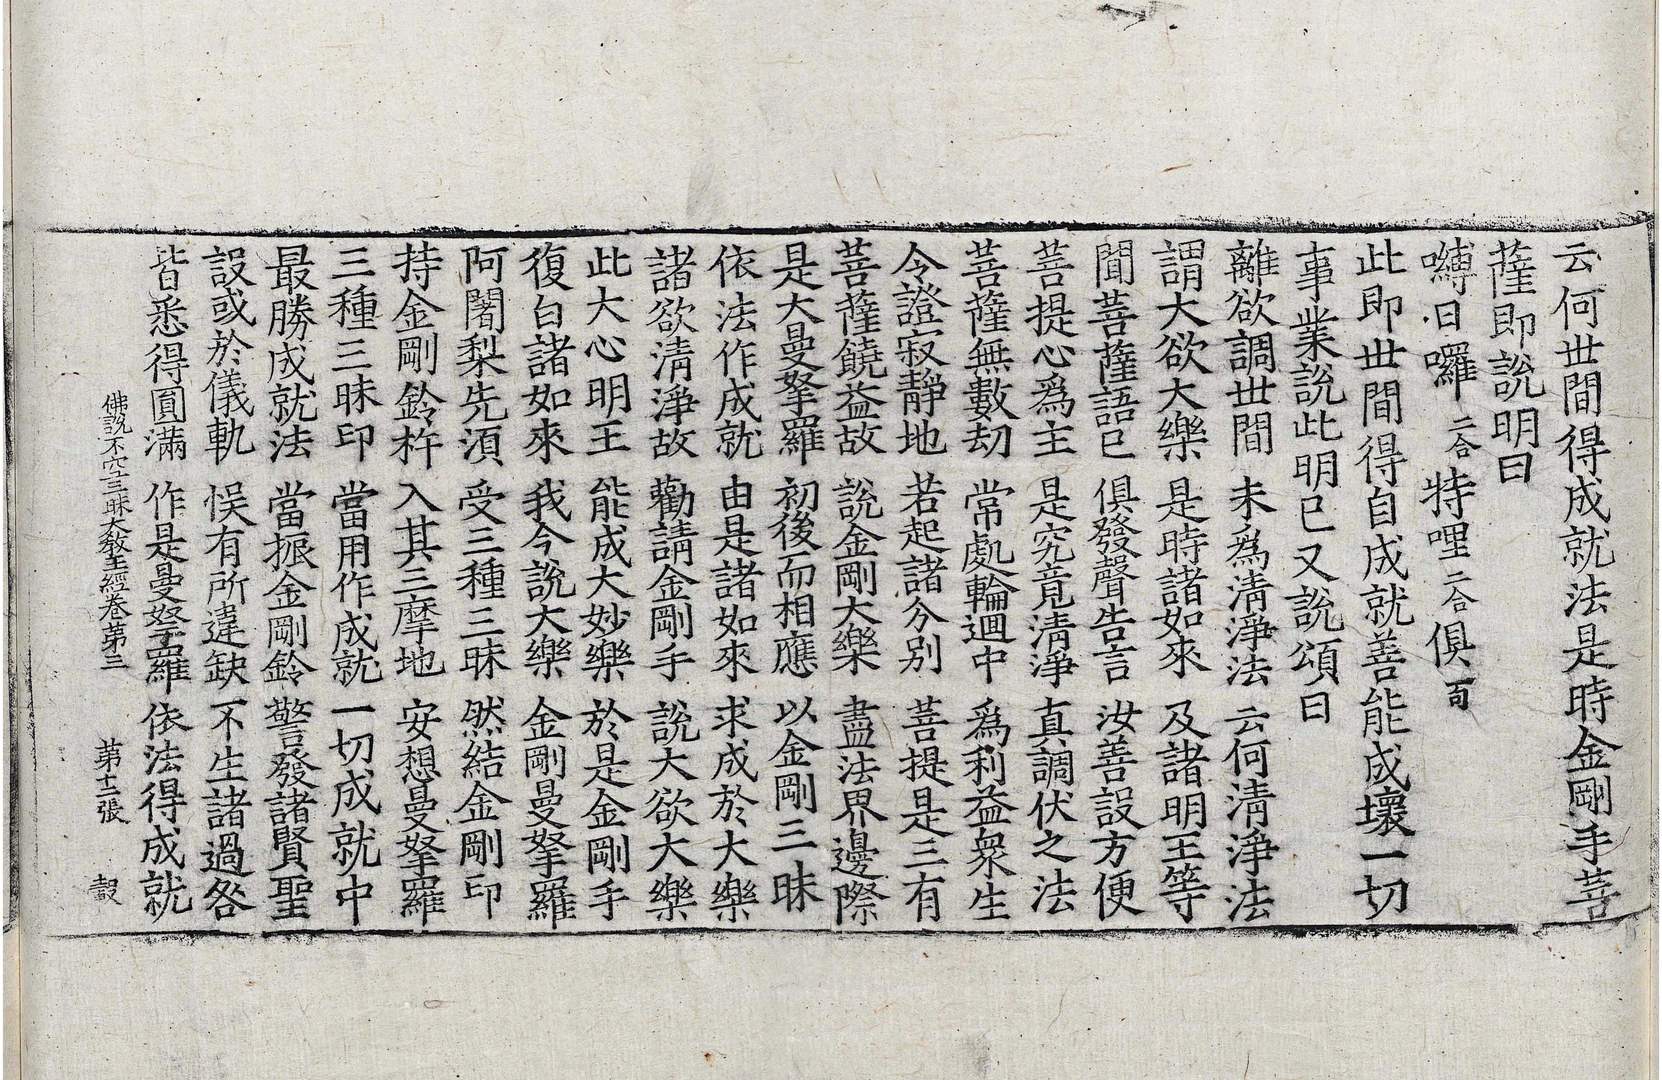 云何丗間得成就法是時金剛手菩
薩即說明曰
嚩日囉二合特哩二合俱一句
此即丗間得自成就善能成壞一切
事業說此明已又說頌曰
離欲調丗間 未爲清淨法 云何清淨法
謂大欲大樂 是時諸如來 及諸明王等
聞菩薩語已 俱發聲告言 汝善設方便
菩提心爲主 是究竟清淨 真調伏之法
菩薩無數劫 常處輪迴中 爲利益衆生
令證寂靜地 若起諸分別 菩提是三有
菩薩饒益故 說金剛大樂 盡法界邊際
是大曼拏羅 初後而相應 以金剛三昧
依法作成就 由是諸如來 求成於大樂
諸欲清淨故 勸請金剛手 說大欲大樂
此大心明王 能成大妙樂 於是金剛手
復白諸如來 我今說大樂 金剛曼拏羅
阿闍梨先湏 受三種三昧 然結金剛印
持金剛鈴杵 入其三摩地 安想曼拏羅
三種三昧印 當用作成就 一切成就中
最勝成就法 當振金剛鈴 警發諸賢聖
設或於儀軌 悮有所違缺 不生諸過咎
皆悉得圓滿 作是曼拏羅 依法得成就
佛說不空三昧大教王經卷第三 第十二張 㲄